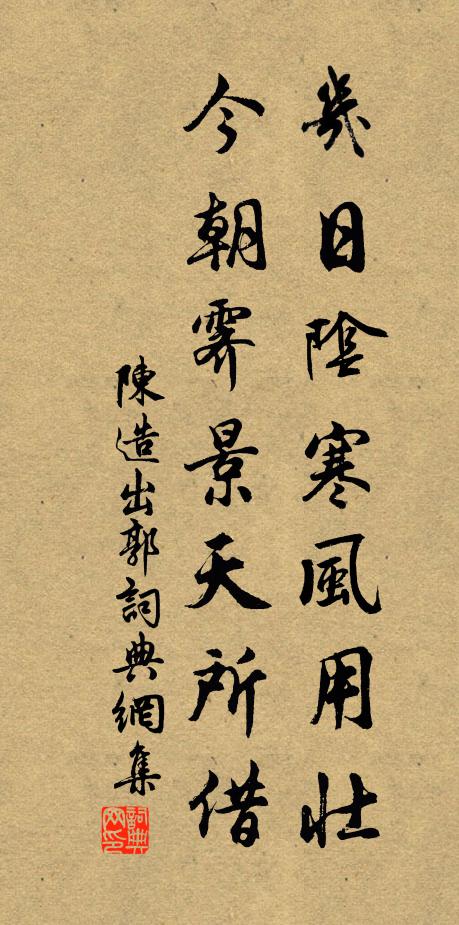 幾日陰寒風用壯
今朝霽景天所借
陳造出郭詞典網集
詞典网印